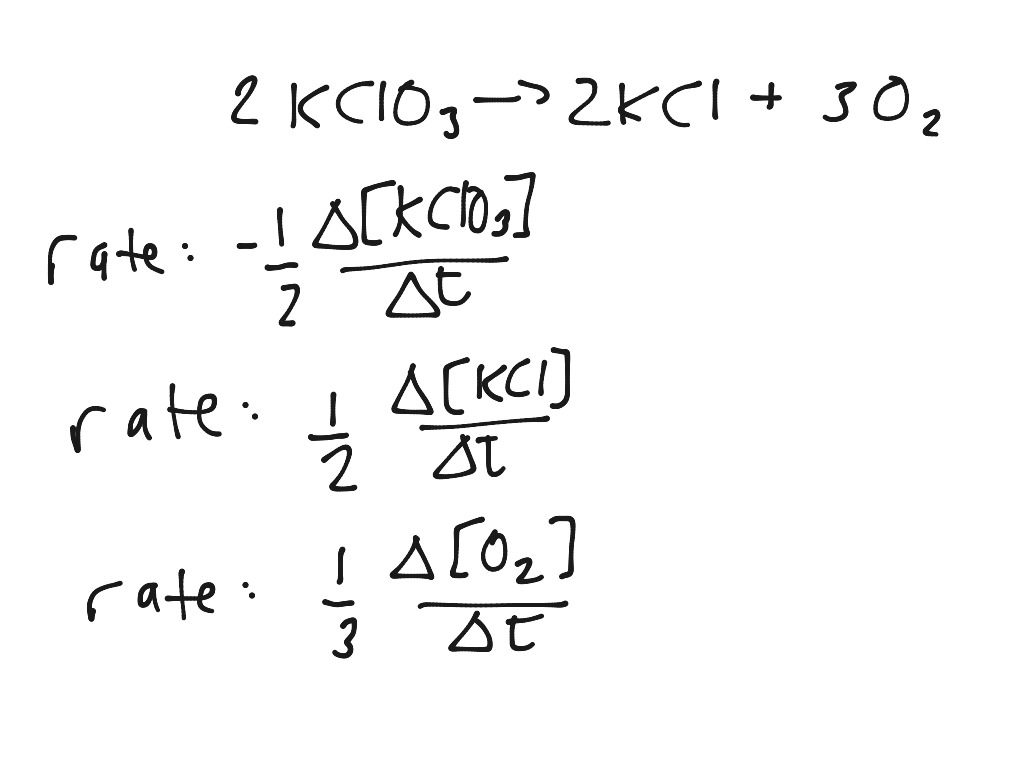 2 KClO₃ → 2KCl + 3O₂
rate: -1/2 Δ[KClO₃]/Δt
rate: 1/2 Δ[KCl]/Δt
rate: 1/3 Δ[O₂]/Δt